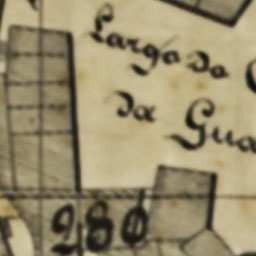 Largo do
da Gua
280